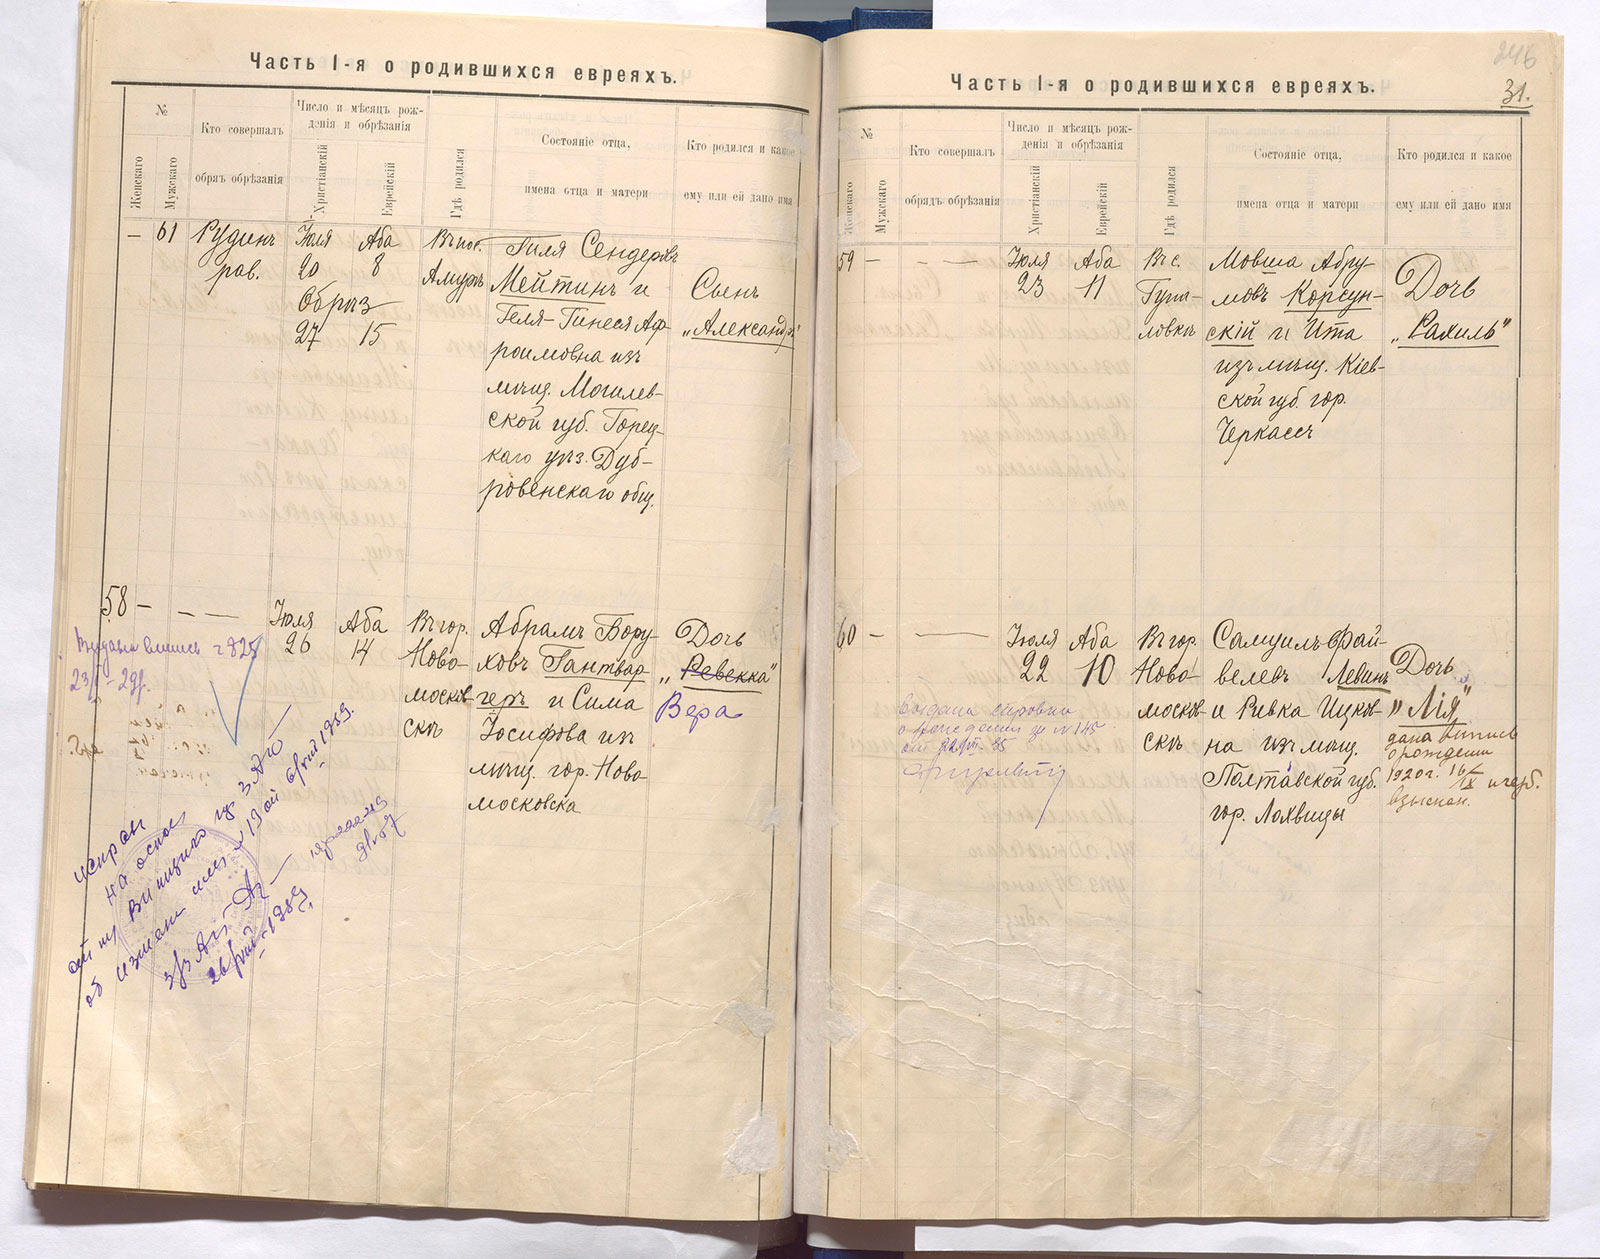 Часть I-я о родившихся евреяхъ.
№
Женскаго
Мужескаго
Кто совершалъ
обрядъ обрѣзанія
Число и мѣсяцъ рож-
денія и обрѣзанія
Христіанскій
Еврейскій
Гдѣ родился
Состояніе отца,
имена отца и матери
Кто родился и какое
ему или ей дано имя
— 61
Рудинъ
рав.
Іюля
20
Обрѣз
27
Аба
8
15
Въ пос.
Амуръ
Гиля Сендеровъ
Мейтинъ и
Геля-Гинеся Аф-
роимовна изъ
мѣщ. Могилев-
ской губ. Горец-
каго уѣз. Дуб-
ровенскаго общ.
Сынъ
„Александръ"
58 — — —
Іюля
26
Аба
14
Въ гор.
Ново-
москов-
скѣ
Абрамъ Бору-
ховъ Гантвар-
геръ и Сима
Іосифова изъ
мѣщ. гор. Ново-
московска
Дочь
„Ревекка"
Вера
Выдана выпись №825
исправ
на основ
об измен
1989.
Часть I-я о родившихся евреяхъ.
246
31.
№
Женскаго
Мужскаго
Кто совершалъ
обрядъ обрѣзанія
Число и мѣсяцъ рож-
денія и обрѣзанія
Христіанскій
Еврейскій
Гдѣ родился
Состояніе отца,
имена отца и матери
Кто родился и какое
ему или ей дано имя
59 — — —
Іюля
23
Аба
11
Въ с.
Гупа-
ловкѣ
Мовша Абру-
мовъ Корсун-
скій и Ита
изъ мѣщ. Кіев-
ской губ. гор.
Черкассъ
Дочь
„Рахиль"
60 — —
Іюля
22
Аба
10
Въ гор.
Ново-
москов-
скѣ
Самуилъ Фай-
велевъ Левинъ
и Ривка Ицков-
на изъ мѣщ.
Полтавской губ.
гор. Лохвицы
Дочь
„Лія"
дана выпись
о рождении
1920 г.
взыскан.
Выдана справка
о рождении за №145